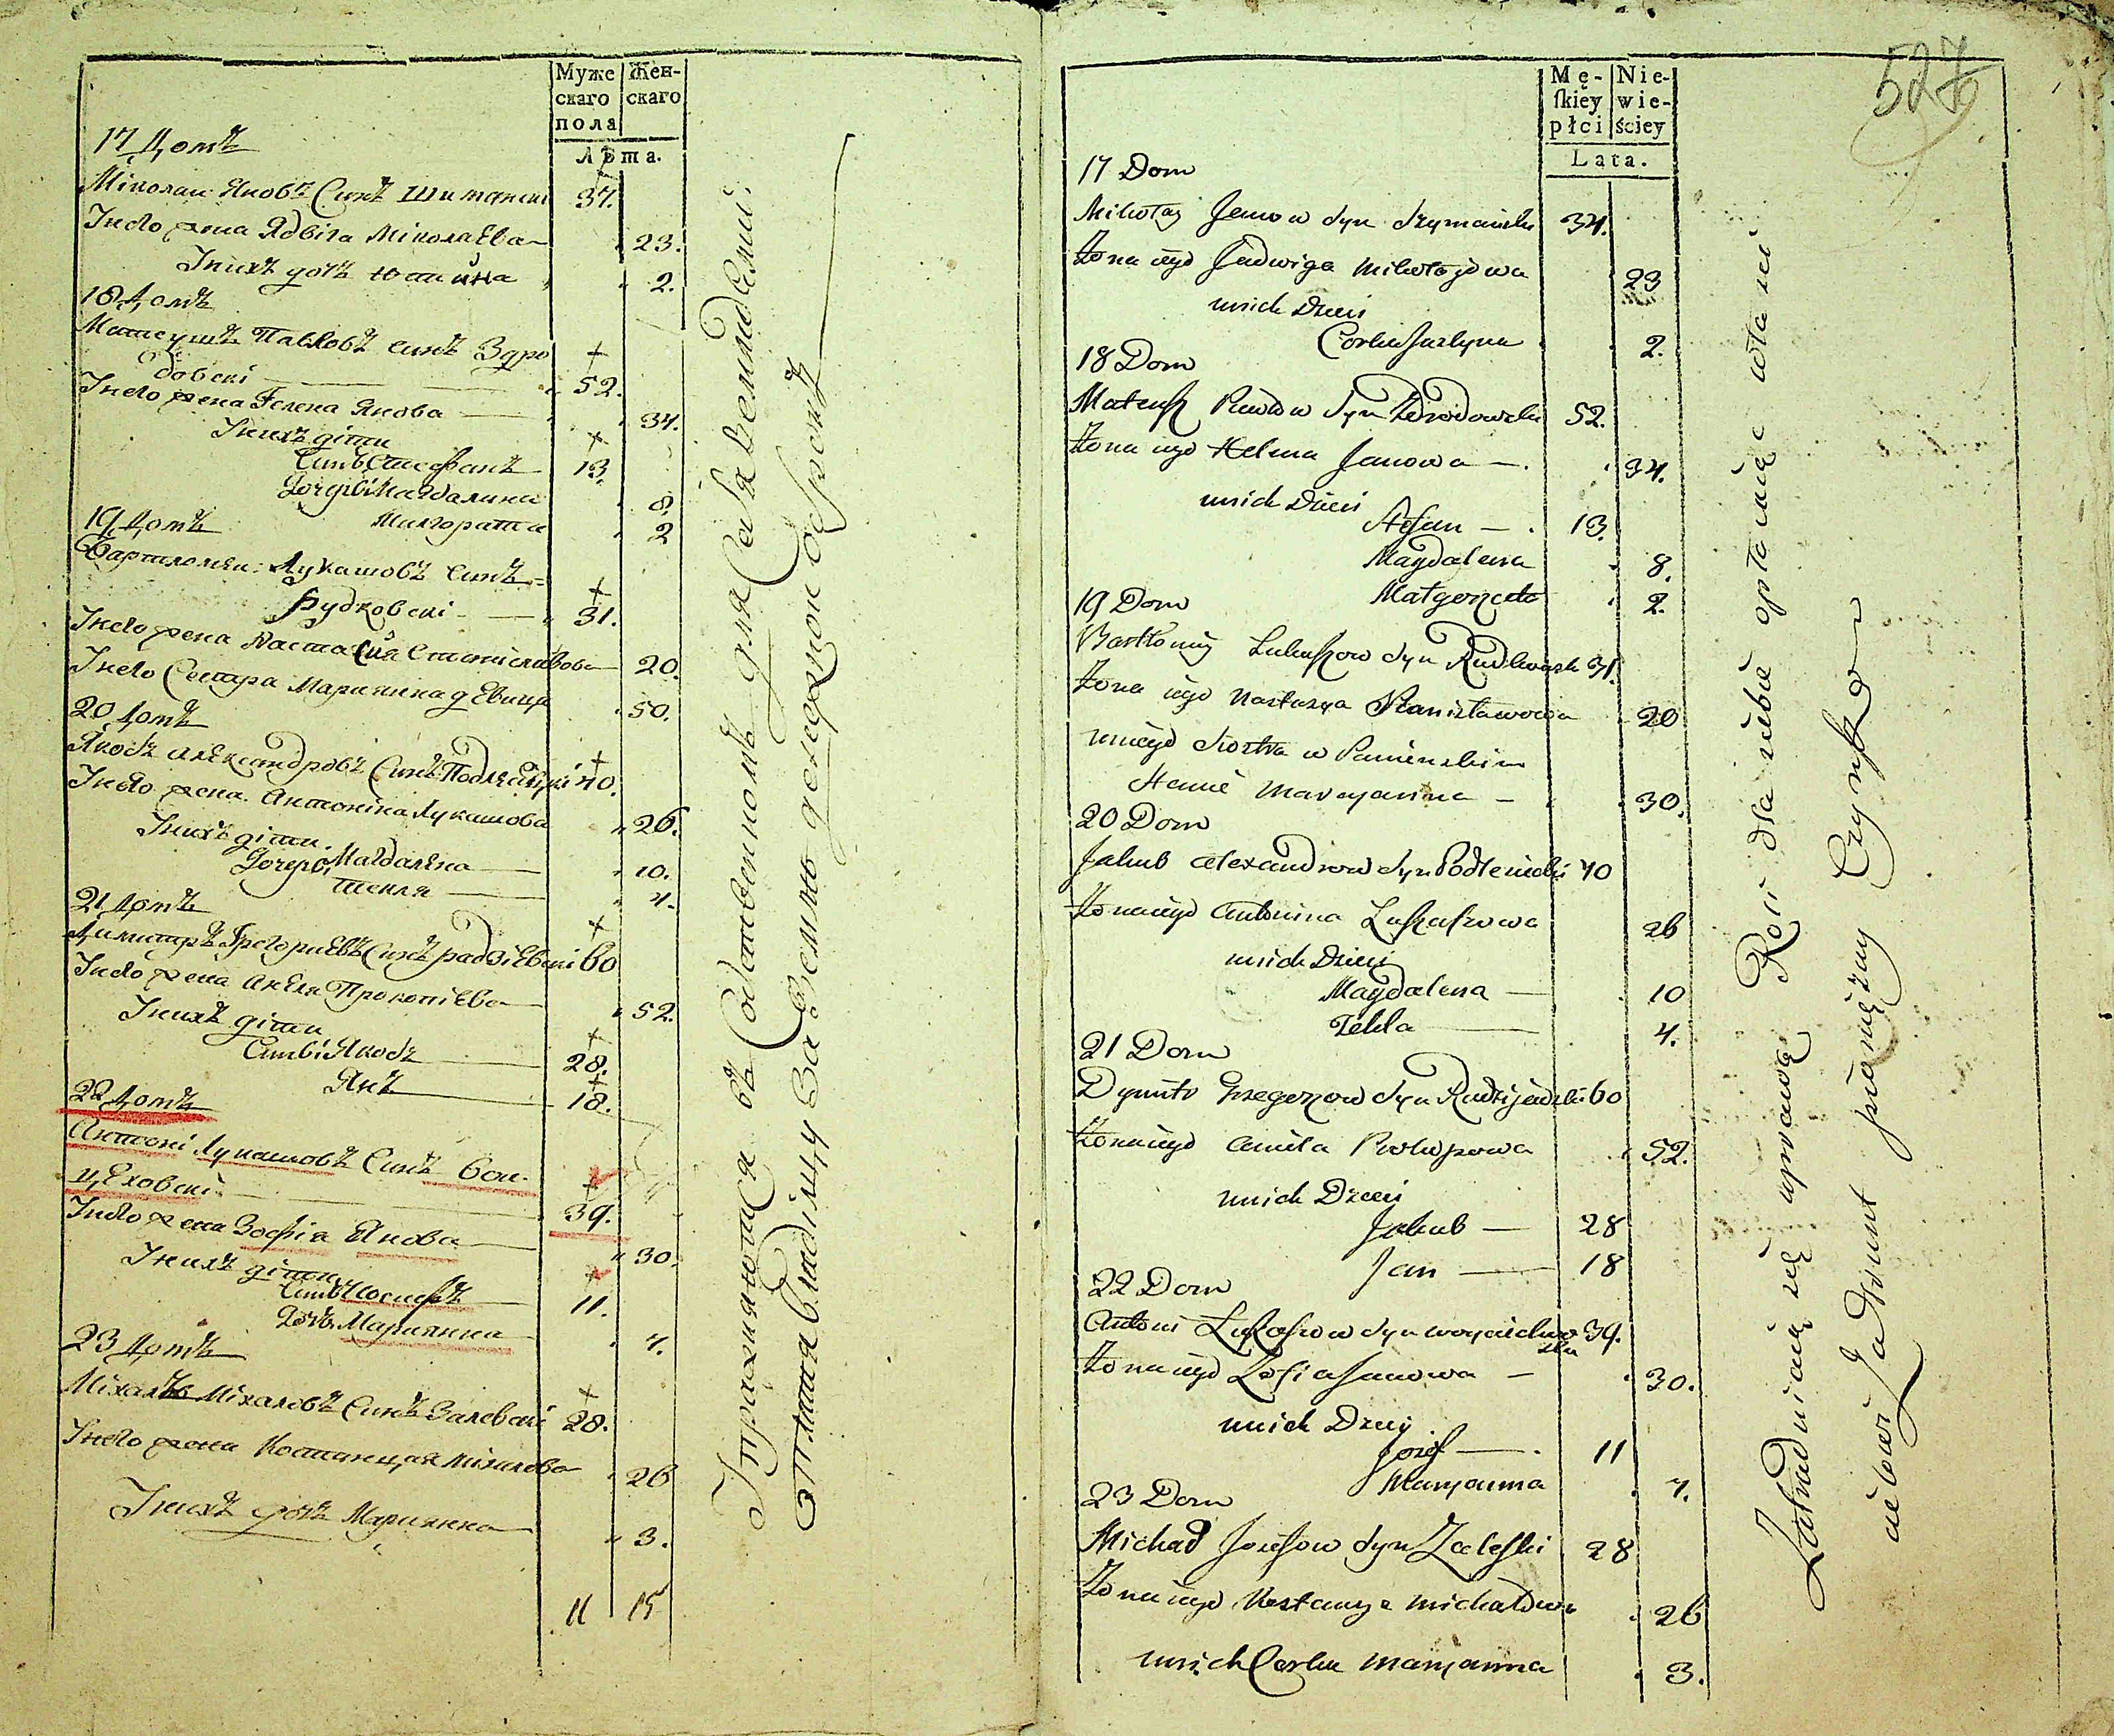 Муже
скаго
пола
Жен-
скаго
Лѣта.
17 Домъ
Міколаи Яновъ Синъ Шиманскі 37.
Јнего жена Ядвіга Міколаева 23.
Јнихъ дочъ Юстина 2.
18 Домъ
Матеушъ Павловъ синъ Здро
довскі 52.
Јнего жена Гелена Янова 34.
Јнихъ діти
Синъ Стефанъ 13.
Дочери Магдалина 8.
Малгората 2
19 Домъ
Бартломеи Лукашовъ Синъ
Рудковскі 31.
Јнего жена Настасия Станиславова 20.
Јнего Сестра Марианна девица 50.
20 Домъ
Якобъ Александровъ Синъ 40.
Јнего жена Антоніна Лукашова 26.
Јнихъ діти.
Дочери Магдалена 10.
Текля 4.
21 Домъ
Димитръ Грегориевъ Синъ Радзіевскі 60
Јнего жена Анеля Прокопіева 52.
Јнихъ діти
Сини Якобъ 28.
Янъ 18.
22 Домъ
Антоні Лукашовъ Синъ Вои-
цеховскі 39.
Јнего жена Зофіа Янова 30.
Јнихъ діти
Синъ Иосифъ 11.
Дочъ Марианна 4.
23 Домъ
Міхалъ Міхаловъ Синъ Залевскі 28.
Јнего жена Костанция Міхалова 26
Јнихъ дочъ Марианна 3.
11 15
Упражняются въ для Себя Земли Семи
отплатя Владілцу За Землю денежнои Оброкъ
527
Mę-
ſkiéy
płci
Nie-
wie-
ściey
Lata.
17 Dom
Mikołay Janow Syn Szymański 34.
Zona iego Jadwiga Mikołajowa 23
unich Dzieci
Corka Justyna 2.
18 Dom
Mateusz Pawłow Syn Zdrodowski 52.
Zona iego Helena Janowa 34.
unich Dzieci
Stefan 13.
Magdalena 8.
Małgorzata 2.
19 Dom
Bartłomiy Łukaszow Syn Rudkowski 31.
Zona iego Nastazya Stanisławowa 20
uniego Siostra w Panienskim
Stanie Maryanna 30.
20 Dom
Jakub Alexandrow Syn Podlenicki 40
Zona iego Antonina Łukaszowa 26
unich Dzieci
Magdalena 10
Tekla 4.
21 Dom
Dymitr Grzegorzow Syn Radziiewski 60
Zona iego Aniela Prokopowa 52.
unich Dzieci
Jakub 28
Jan 18
22 Dom
Antoni Łukaszow Syn Woyciechow
ski 39.
Zona iego Zofia Janowa 30.
unich Dzieci
Jozef 11
Maryanna 4.
23 Dom
Michał Jozefow Syn Zaleski 28
Zona iego Kostancya Michałowa 26
unich Corka Maryanna 3.
Zatrudniaią się uprawą Roli dla siebie opłacaiąc właści
cielowi za Grunt pieniężny Czynsz